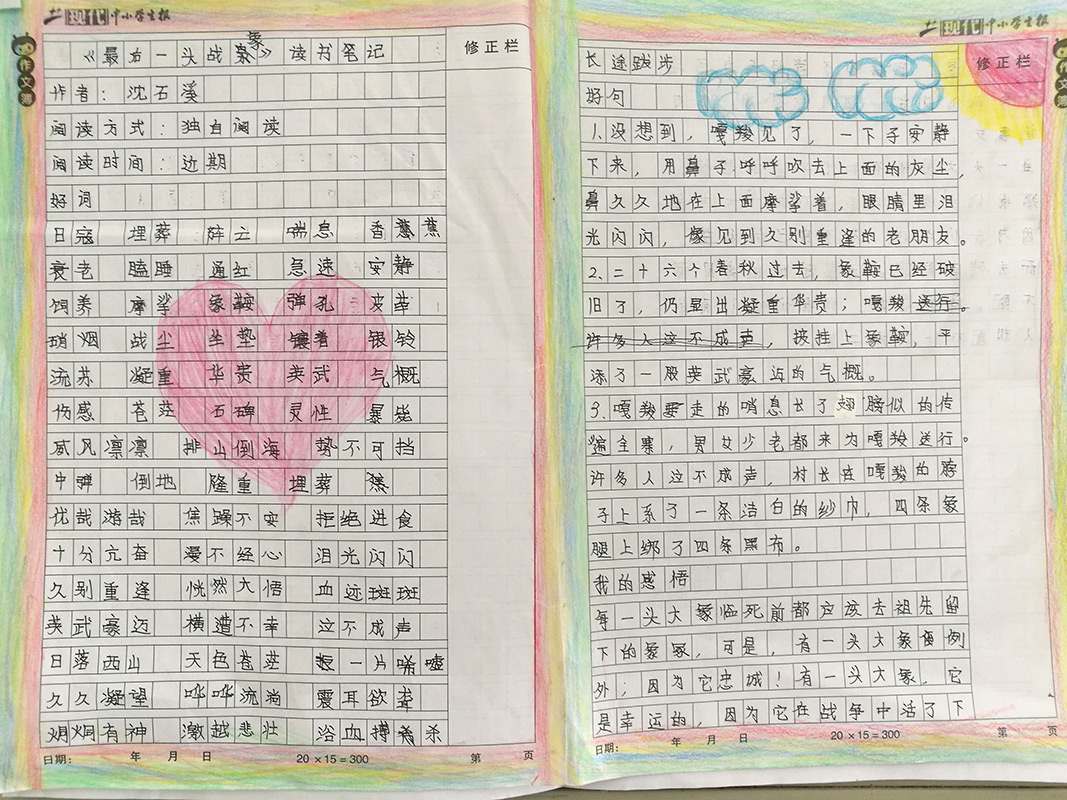 现代中小学生报
作文源
修正栏
《最后一头战象》读书笔记
作者：沈石溪
阅读方式：独自阅读
阅读时间：近期
好词
日寇 埋葬 阵亡 喘息 香蕉
衰老 瞌睡 通红 急速 安静
饲养 摩挲 象鞍 弹孔
硝烟 战尘 坐垫 镶着 银铃
流苏 凝重 华贵 英武 气概
伤感 苍茫 石碑 灵性
威风凛凛 排山倒海 势不可挡
中弹 倒地 隆重 埋葬
优哉游哉 焦躁不安 拒绝进食
十分亢奋 漫不经心 泪光闪闪
久别重逢 恍然大悟 血迹斑斑
英武豪迈 横遭不幸 泣不成声
日落西山 天色苍茫 一片唏嘘
久久凝望 哗哗流淌 震耳欲聋
炯炯有神 激越悲壮 浴血搏杀
日期： 年 月 日 20×15=300 第 页
现代中小学生报
作文源
修正栏
长途跋步
好句
1.没想到，嘎羧见了，一下子安静
下来，用鼻子呼呼吹去上面的灰尘，
鼻久久地在上面摩挲着，眼睛里泪
光闪闪，像见到久别重逢的老朋友。
2.二十六个春秋过去，象鞍已经破
旧了，仍显出凝重华贵；嘎羧送行。
许多人泣不成声，披挂上象鞍，平
添了一股英武豪迈的气概。
3.嘎羧要走的哨息长了翅膀似的传
遍全寨，男女少老都来为嘎羧送行。
许多人泣不成声，村长在嘎羧的脖
子上系了一条洁白的纱巾，四条象
腿上绑了四条黑布。
我的感悟
每一头大象临死前都应该去祖先留
下的象冢，可是，有一头大象例
外；因为它忠诚！有一头大象，它
是幸运的，因为它在战争中活了下
日期： 年 月 日 20×15=300 第 页